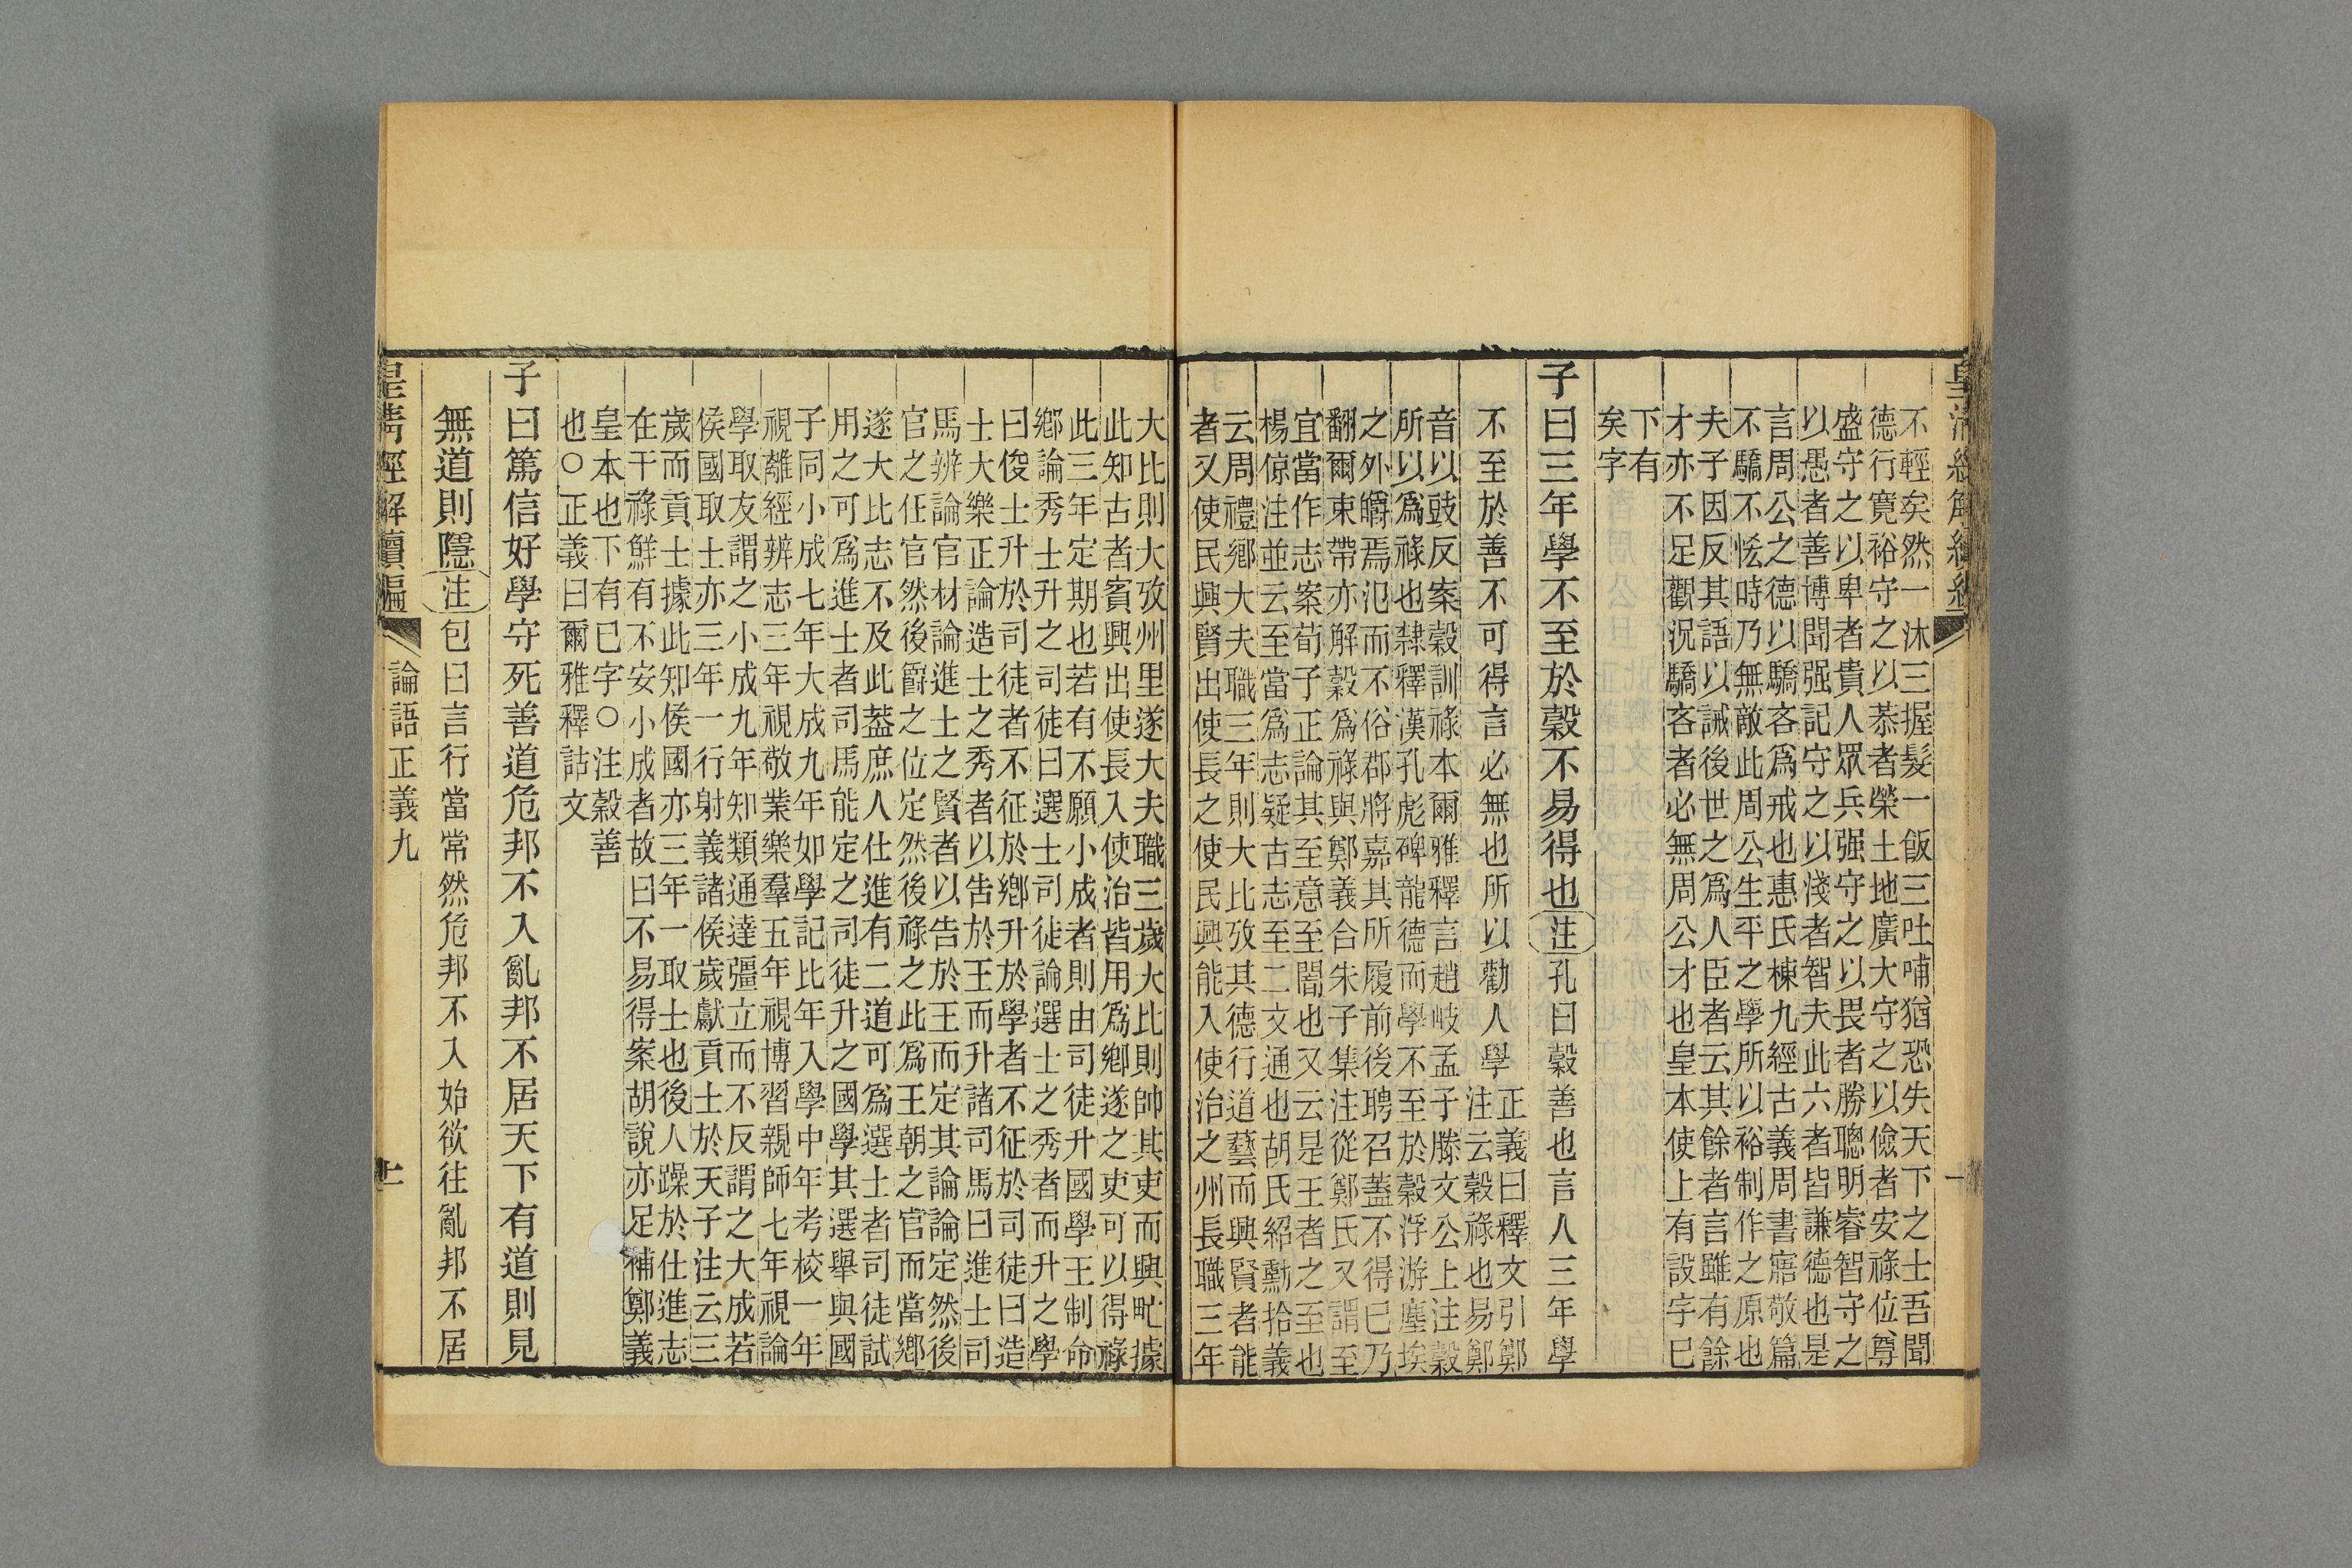 不輕矣然一沐三握髮一飯三吐哺猶恐失天下之士吾聞
德行寬裕守之以恭者榮土地廣大守之以儉者安祿位尊
盛守之以卑者貴人眾兵强守之以畏者勝聰明睿智守之
以愚者善博聞强記守之以淺者智夫此六者皆謙德也是
言周公之德以驕吝爲戒也惠氏棟九經古義周書寤敬篇
不驕不恡時乃無敵此周公生平之學所以裕制作之原也
夫子因反其語以誡後世之爲人臣者云其餘者言雖有餘
才亦不足觀況驕吝者必無周公才也皇本使上有設字已
下有
矣字
子曰三年學不至於穀不易得也注孔曰穀善也言人三年學
不至於善不可得言必無也所以勸人學
正義曰釋文引鄭
注云穀祿也易鄭
音以豉反案穀訓祿本爾雅釋言趙岐孟子滕文公上注穀
所以爲祿也隸釋漢孔彪碑龍德而學不至於穀浮游塵埃
之外皭焉氾而不俗郡將嘉其所履前後聘召蓋不得已乃
翻爾束帶亦解穀爲祿與鄭義合朱子集注從鄭氏又謂至
宜當作志案荀子正論其至意至闇也又云是王者之至也
楊倞注並云至當爲志疑古志至二文通也胡氏紹勳拾義
云周禮鄉大夫職三年則大比攷其德行道藝而興賢者能
者又使民興賢出使長之使民興能入使治之州長職三年
大比則大攷州里遂大夫職三歲大比則帥其吏而興甿據
此知古者賓興出使長入使治皆用爲鄉遂之吏可以得祿
此三年定期也若有不願小成者則由司徒升國學王制命
鄉論秀士升之司徒曰選士司徒論選士之秀者而升之學
曰俊士升於司徒者不征於鄉升於學者不征於司徒曰造
士大樂正論造士之秀者以告於王而升諸司馬曰進士司
馬辨論官材論進士之賢者以告於王而定其論論定然後
官之任官然後爵之位定然後祿之此爲王朝之官而當鄉
遂大比志不及此蓋庶人仕進有二道可爲選士者司徒試
用之可爲進士者司馬能定之司徒升之國學其選舉與國
子同小成七年大成九年如學記比年入學中年考校一年
視離經辨志三年視敬業樂羣五年視博習親師七年視論
學取友謂之小成九年知類通達彊立而不反謂之大成若
侯國取士亦三年一行射義諸侯歲獻貢士於天子注云三
歲而貢士據此知侯國亦三年一取士也後人躁於仕進志
在干祿鮮有不安小成者故曰不易得案胡說亦足補鄭義
皇本也下有已字○注穀善
也○正義曰爾雅釋詁文
子曰篤信好學守死善道危邦不入亂邦不居天下有道則見
無道則隱注包曰言行當常然危邦不入始欲往亂邦不居
皇清經解續編
論語正義九